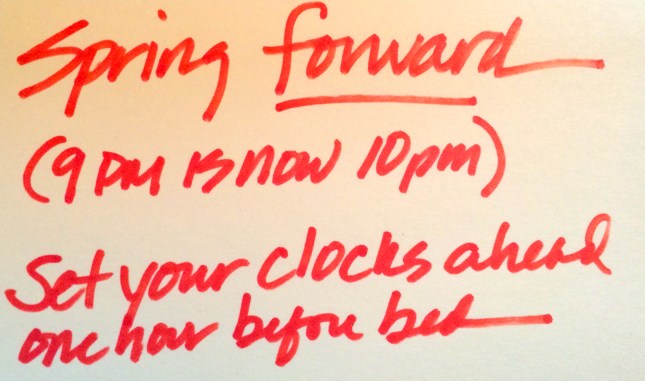 Spring forward
(9 pm is now 10pm)
Set your clocks ahead
one hour before bed